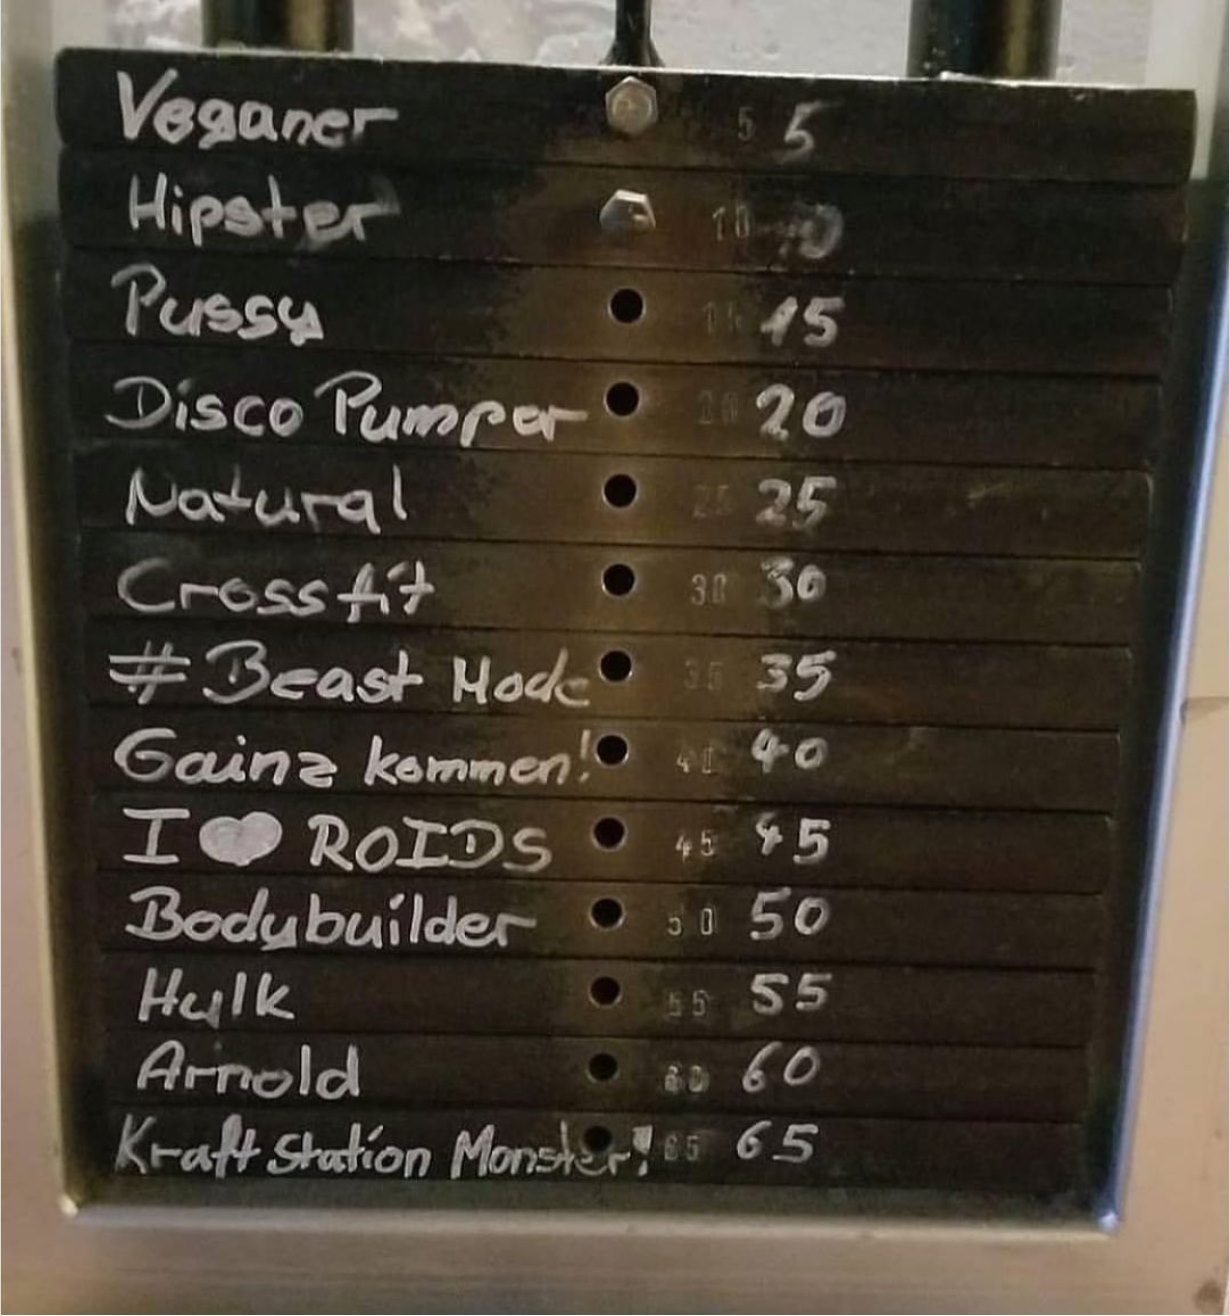 Veganer 5 5
Hipster 10 10
Pussy 15 15
Disco Pumper 20 20
Natural 25 25
Crossfit 30 30
# Beast Mode 35 35
Gainz kommen! 40 40
I ♥ ROIDS 45 45
Bodybuilder 50 50
Hulk 55 55
Arnold 60 60
Kraftstation Monster! 65 65